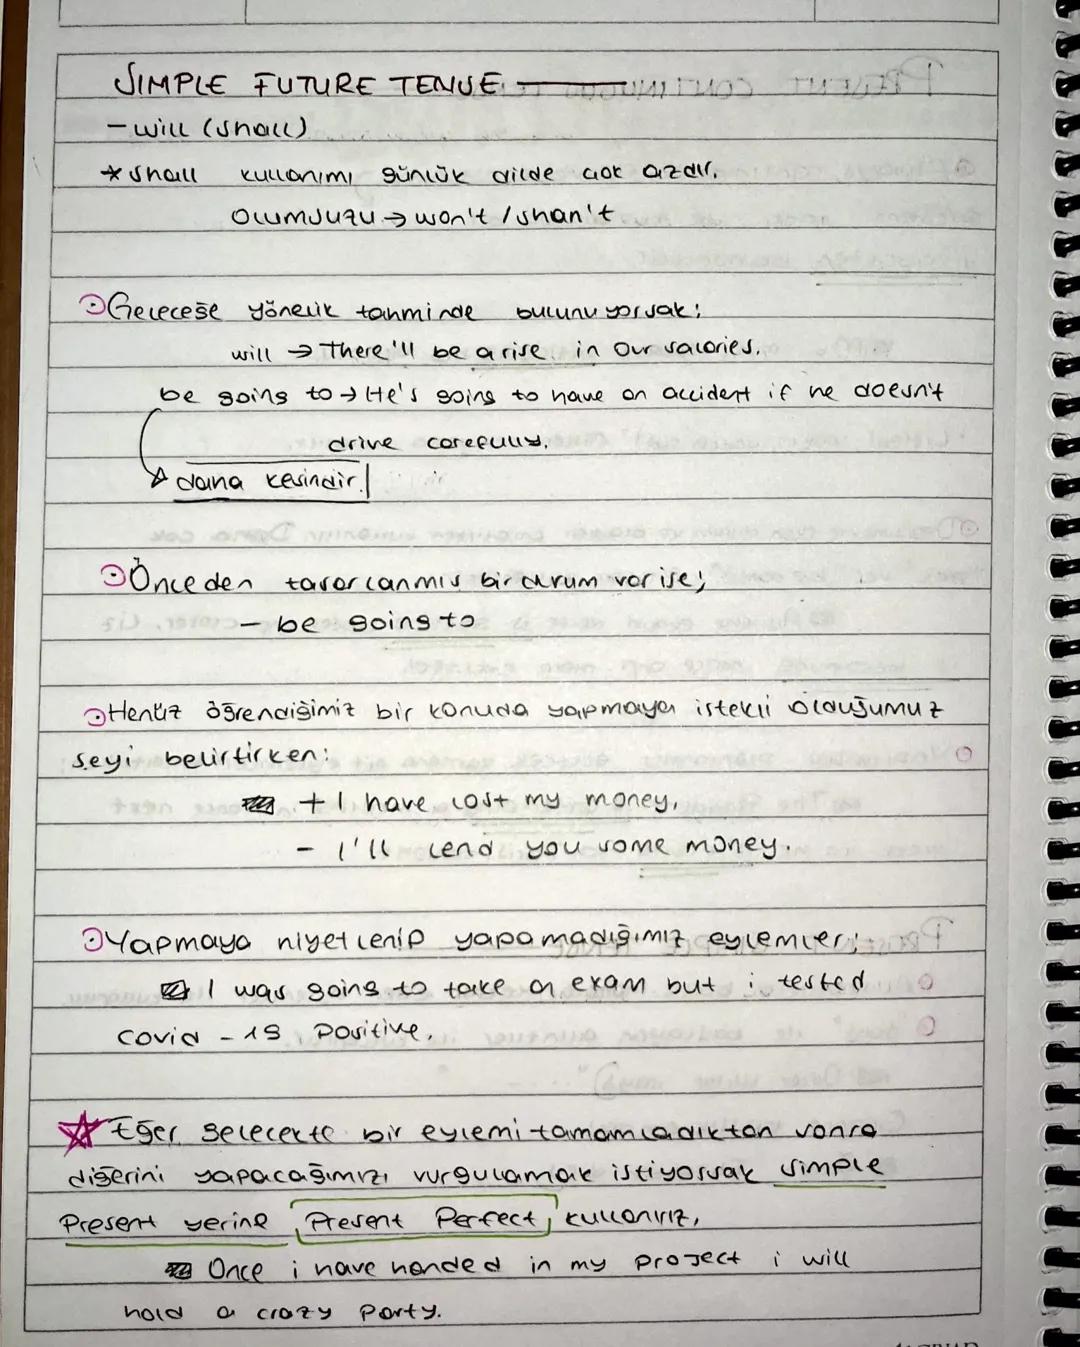 SIMPLE FUTURE TENSE
- will (shall)
* shall kullanımı günlük dilde çok azdır.
Olumsuzu → won't / shan't
Geleceğe yönelik tahminde bulunuyorsak;
will → There'll be a rise in our salaries.
be going to → He's going to have an accident if he doesn't
drive carefully.
daha kesindir.
Önceden tasarlanmış bir durum var ise;
- be going to
Henüz öğrendiğimiz bir konuda yapmaya istekli olduğumuz
şeyi belirtirken:
+ I have lost my money.
- I'll lend you some money.
Yapmaya niyetlenip yapamadığımız eylemler;
I was going to take an exam but i tested
covid - 19 positive.
Eğer gelecekte bir eylemi tamamladıktan sonra
diğerini yapacağımızı vurgulamak istiyorsak simple
present yerine Present Perfect kullanırız.
Once i have handed in my project i will
hold a crazy party.